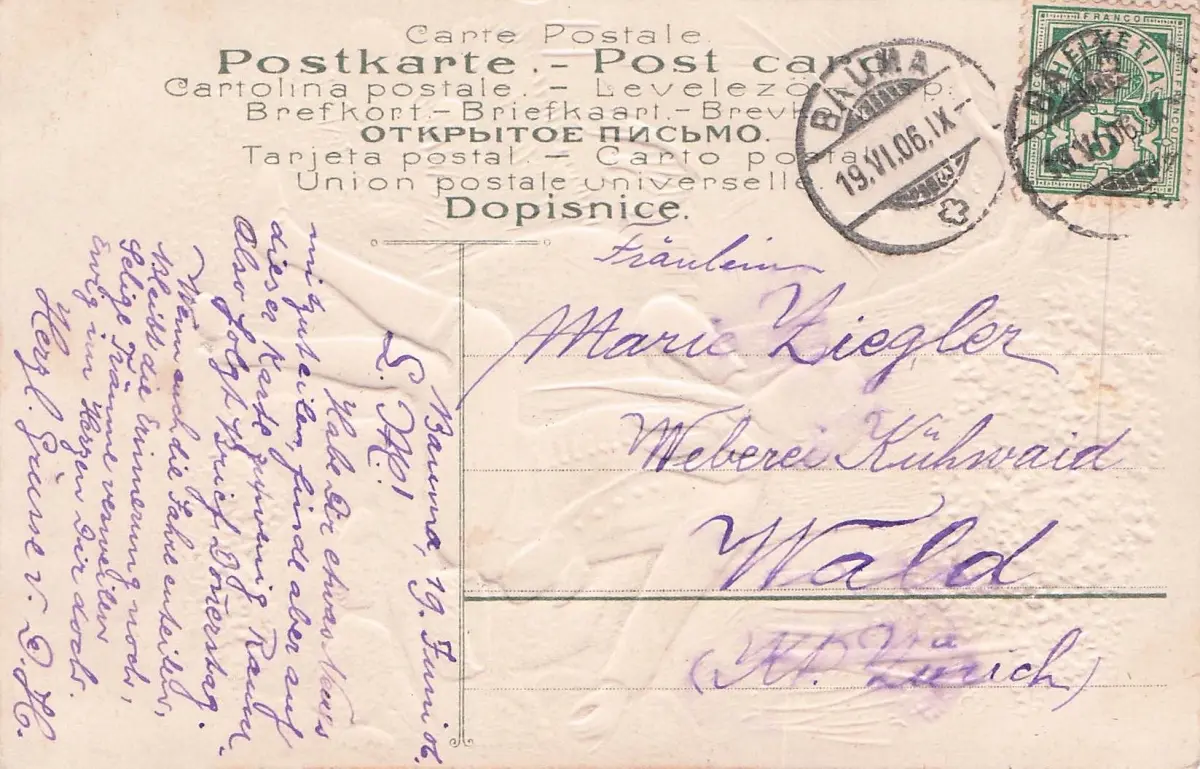 Carte Postale.
Postkarte. – Post card.
Cartolina postale. – Levelező p.
Brefkort. – Briefkaart. – Brevk
ОТКРЫТОЕ ПИСЬМО.
Tarjeta postal. – Carto posta
Union postale universelle
Dopisnice.
BAUMA
19.VI.06.IX–
FRANCO
HELVETIA
5
BAUMA
19.VI.06.IX
Fräulein
Marie Ziegler
Weberei Kühwaid
Wald
(Kt. Zürich)
Bauma, 19. Juni 06.
L. M!
Habe Dir etwas Neues
mitzuteilen, finde aber auf
dieser Karte zu wenig Raum.
Also folgt Brief Donerstag.
Wenn auch die Jahre enteilen,
Bleibt die Erinnerung noch,
Selige Träume verweilen
Ewig im Herzen Dir doch.
Herzl. Grüsse v. D. H.